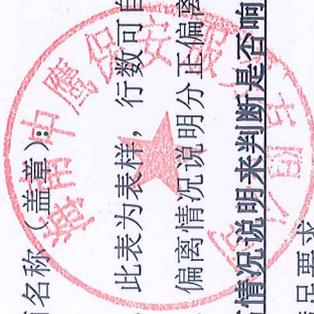 名称（盖章）：
此表为表样，行数可自
偏离情况说明分正偏离
情况说明来判断是否响
足要求
海南中鹰保安